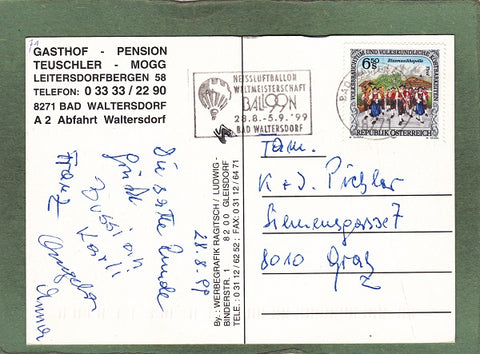 GASTHOF - PENSION
TEUSCHLER - MOGG
LEITERSDORFBERGEN 58
TELEFON: 0 33 33 / 22 90
8271 BAD WALTERSDORF
A 2 Abfahrt Waltersdorf
HEISSLUFTBALLON
WELTMEISTERSCHAFT
BALL99N
28.8.-5.9.'99
BAD WALTERSDORF
6.50
REPUBLIK ÖSTERREICH
By.: WERBEGRAFIK RAGITSCH / LUDWIG -
BINDERSTR. 1 8200 GLEISDORF
TELE.: 0 31 12 / 62 52; FAX: 0 31 12 / 64 71
28.8.99
Die
Runde
Karli
Franz
Fam.
K + J. Pichler
Siemensgasse 7
8010 Graz